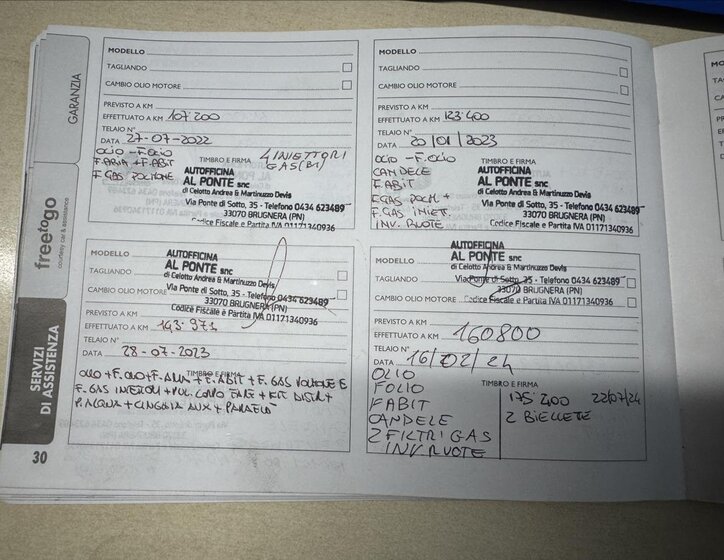 GARANZIA
freetogo
courtesy car & assistance
SERVIZI
DI ASSISTENZA
30
MODELLO
TAGLIANDO
CAMBIO OLIO MOTORE
PREVISTO A KM
EFFETTUATO A KM 107 200
TELAIO N°
DATA 27-07-2022
OLIO - F.OLIO
F. ARIA + F. ABIT
F. GAS
TIMBRO E FIRMA
4 INIETTORI
GAS (B1)
AUTOFFICINA
AL PONTE snc
di Celotto Andrea & Martinuzzo Devis
Via Ponte di Sotto, 35 - Telefono 0434 623489
33070 BRUGNERA (PN)
Codice Fiscale e Partita IVA 01171340936
MODELLO
TAGLIANDO
CAMBIO OLIO MOTORE
PREVISTO A KM
EFFETTUATO A KM 123 400
TELAIO N°
DATA 20/01/2023
OLIO - F. OLIO
CANDELE
F. ABIT
F. GAS
F. GAS INIET.
INV. RUOTE
TIMBRO E FIRMA
AUTOFFICINA
AL PONTE snc
di Celotto Andrea & Martinuzzo Devis
Via Ponte di Sotto, 35 - Telefono 0434 623489
33070 BRUGNERA (PN)
Codice Fiscale e Partita IVA 01171340936
MODELLO
TAGLIANDO
CAMBIO OLIO MOTORE
AUTOFFICINA
AL PONTE snc
di Celotto Andrea & Martinuzzo Devis
Via Ponte di Sotto, 35 - Telefono 0434 623489
33070 BRUGNERA (PN)
Codice Fiscale e Partita IVA 01171340936
PREVISTO A KM
EFFETTUATO A KM 143.971
TELAIO N°
DATA 28-07-2023
TIMBRO E FIRMA
OLIO + F. OLIO + F. ARIA + F. ABIT + F. GAS
F. GAS INIETTORI + PUL. CORPO FARF + KIT DISTR +
P. ACQUA + CINGHIA AUX +
AUTOFFICINA
AL PONTE snc
di Celotto Andrea & Martinuzzo Devis
Via Ponte di Sotto, 35 - Telefono 0434 623489
33070 BRUGNERA (PN)
Codice Fiscale e Partita IVA 01171340936
MODELLO
TAGLIANDO
CAMBIO OLIO MOTORE
PREVISTO A KM
EFFETTUATO A KM 160800
TELAIO N°
DATA 16/02/24
OLIO
FOLIO
FABIT
CANDELE
2 FILTRI GAS
INV RUOTE
TIMBRO E FIRMA
175 400 22/07/24
2 BIELLETE